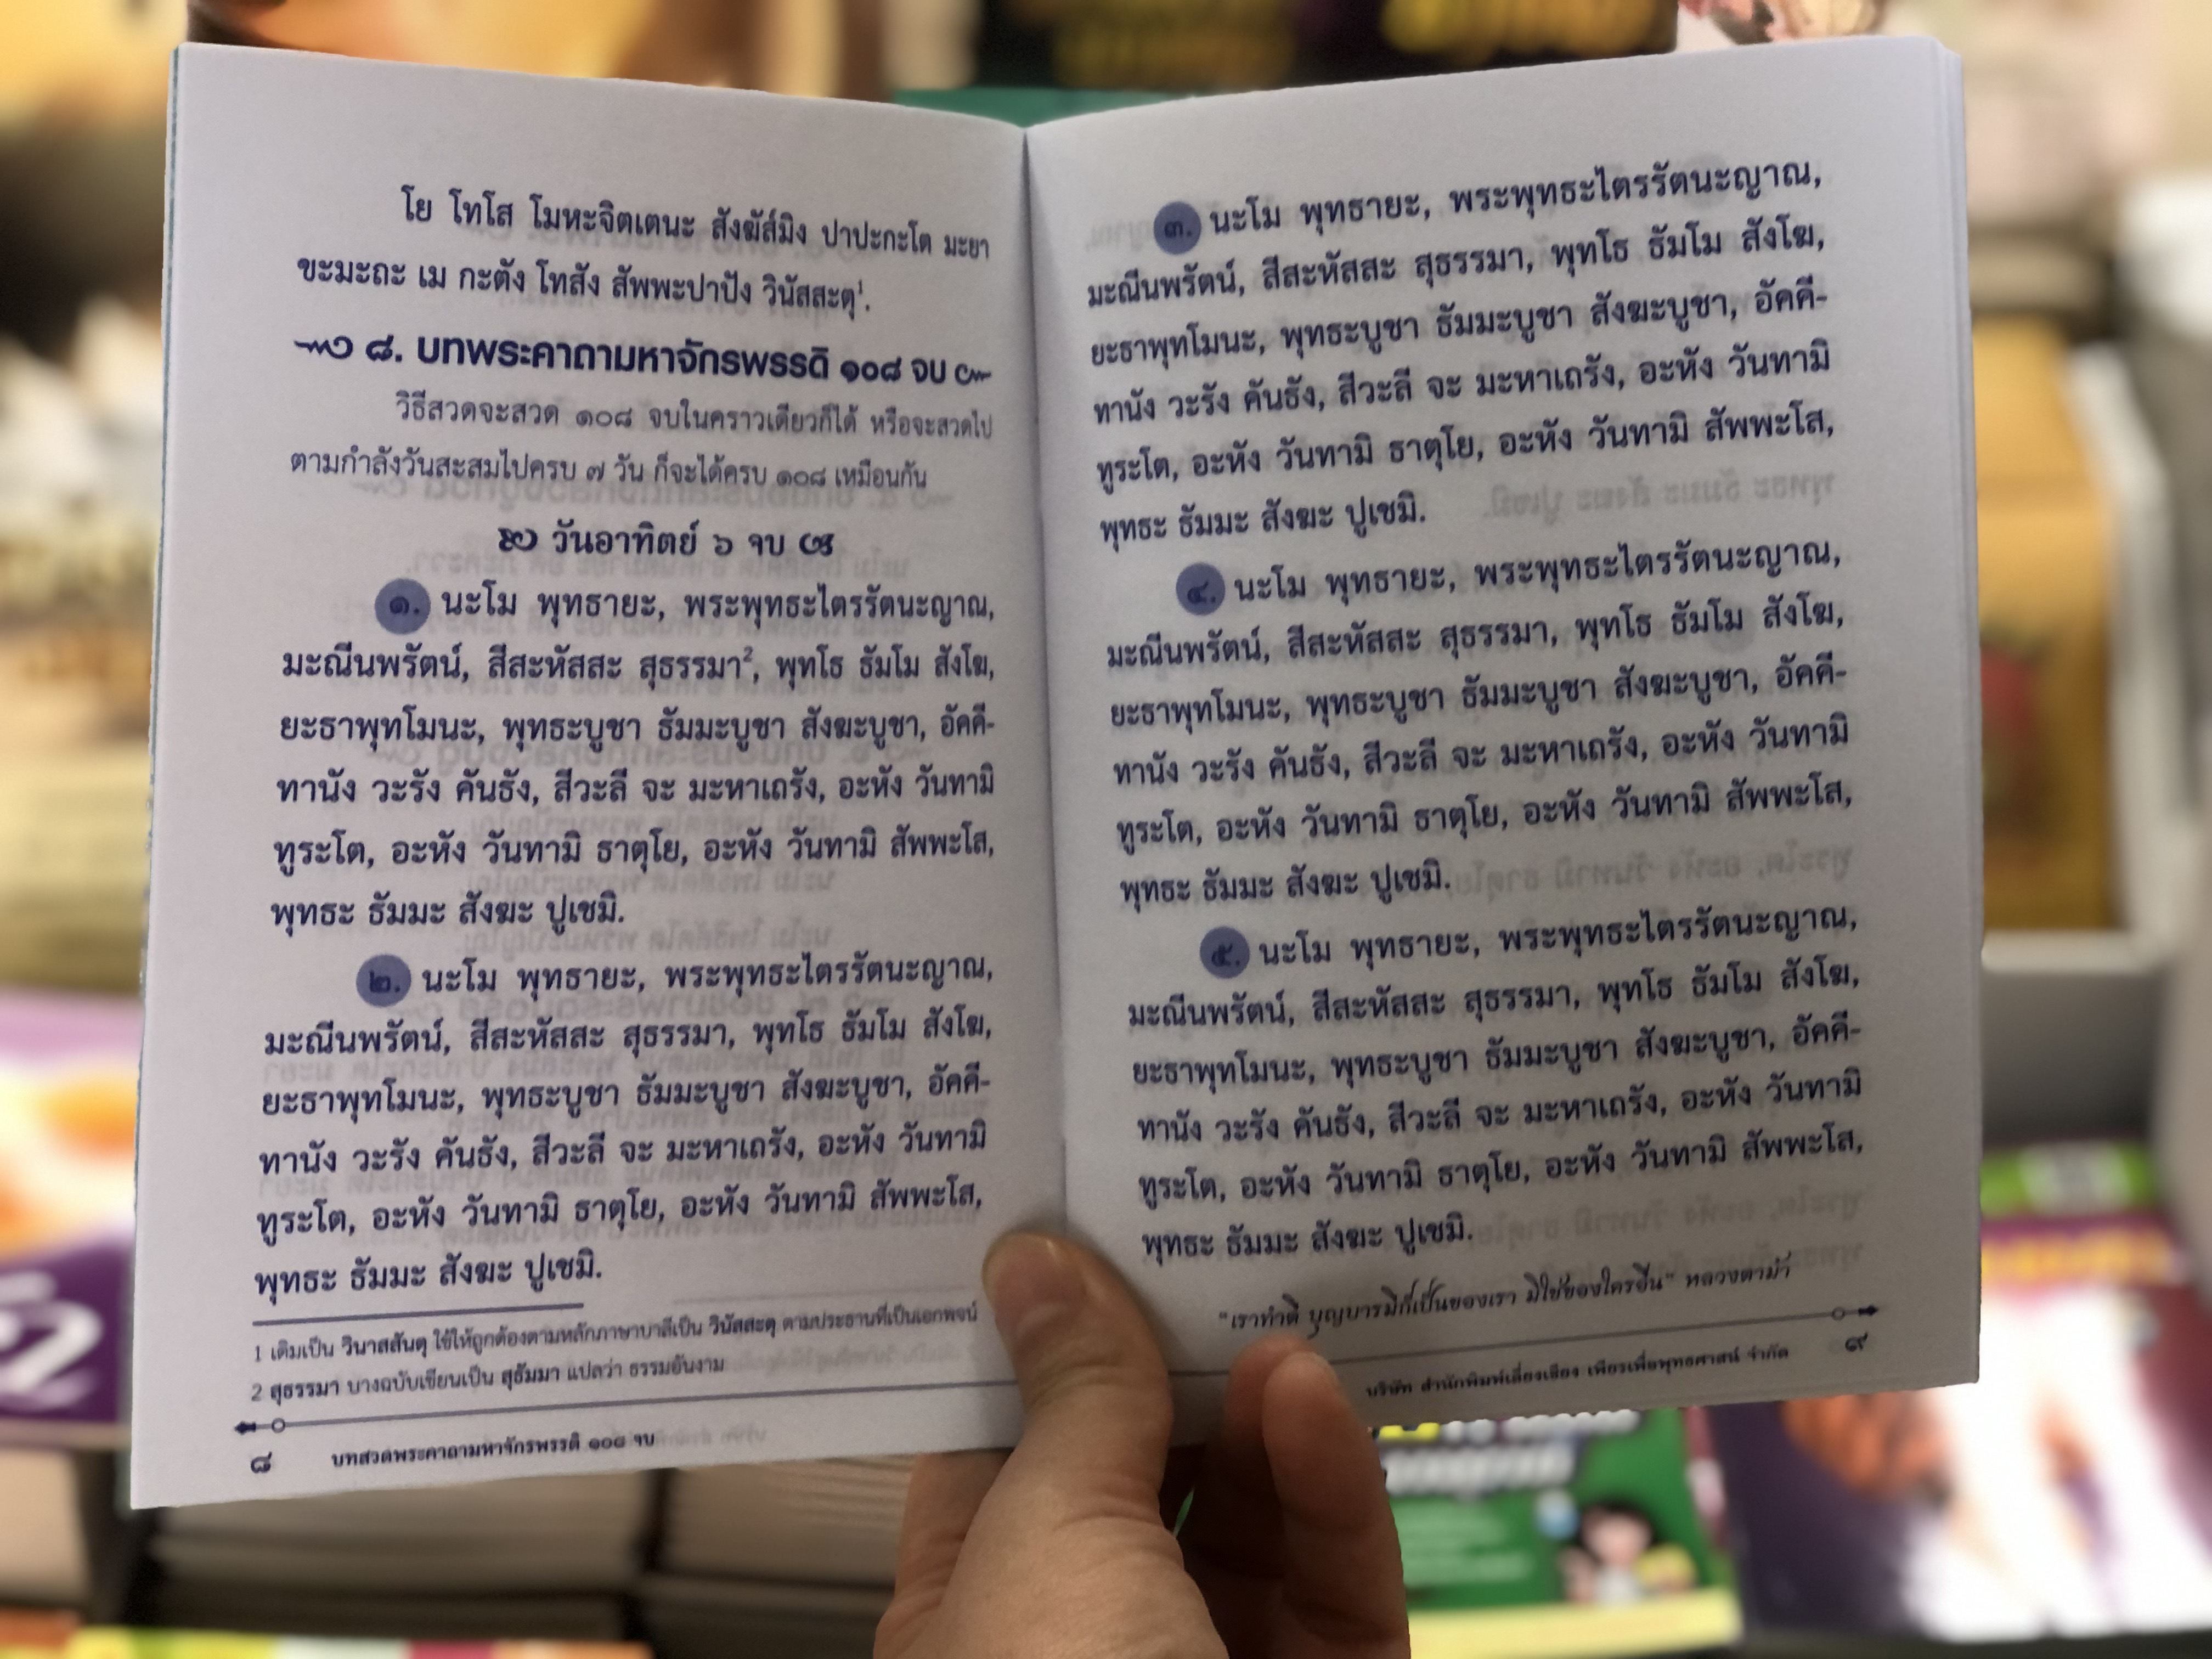 โย โทโส โมหะจิตเตนะ สังฆัส์มิง ปาปะกะโต มะยา
ขะมะถะ เม กะตัง โทสัง สัพพะปาปัง วินัสสะตุ1.
๘. บทพระคาถามหาจักรพรรดิ ๑๐๘ จบ
วิธีสวดจะสวด ๑๐๘ จบในคราวเดียวก็ได้ หรือจะสวดไป
ตามกำลังวันสะสมไปครบ ๗ วัน ก็จะได้ครบ ๑๐๘ เหมือนกัน
วันอาทิตย์ ๖ จบ
๑. นะโม พุทธายะ, พระพุทธะไตรรัตนะญาณ,
มะณีนพรัตน์, สีสะหัสสะ สุธรรมา2, พุทโธ ธัมโม สังโฆ,
ยะธาพุทโมนะ, พุทธะบูชา ธัมมะบูชา สังฆะบูชา, อัคคี-
ทานัง วะรัง คันธัง, สีวะลี จะ มะหาเถรัง, อะหัง วันทามิ
ทูระโต, อะหัง วันทามิ ธาตุโย, อะหัง วันทามิ สัพพะโส,
พุทธะ ธัมมะ สังฆะ ปูเชมิ.
๒. นะโม พุทธายะ, พระพุทธะไตรรัตนะญาณ,
มะณีนพรัตน์, สีสะหัสสะ สุธรรมา, พุทโธ ธัมโม สังโฆ,
ยะธาพุทโมนะ, พุทธะบูชา ธัมมะบูชา สังฆะบูชา, อัคคี-
ทานัง วะรัง คันธัง, สีวะลี จะ มะหาเถรัง, อะหัง วันทามิ
ทูระโต, อะหัง วันทามิ ธาตุโย, อะหัง วันทามิ สัพพะโส,
พุทธะ ธัมมะ สังฆะ ปูเชมิ.
1 เดิมเป็น วินาสสันตุ ใช้ให้ถูกต้องตามหลักภาษาบาลีเป็น วินัสสะตุ ตามประธานที่เป็นเอกพจน์
2 สุธรรมา บางฉบับเขียนเป็น สุธัมมา แปลว่า ธรรมอันงาม
๘ บทสวดพระคาถามหาจักรพรรดิ ๑๐๘ จบ
๓. นะโม พุทธายะ, พระพุทธะไตรรัตนะญาณ,
มะณีนพรัตน์, สีสะหัสสะ สุธรรมา, พุทโธ ธัมโม สังโฆ,
ยะธาพุทโมนะ, พุทธะบูชา ธัมมะบูชา สังฆะบูชา, อัคคี-
ทานัง วะรัง คันธัง, สีวะลี จะ มะหาเถรัง, อะหัง วันทามิ
ทูระโต, อะหัง วันทามิ ธาตุโย, อะหัง วันทามิ สัพพะโส,
พุทธะ ธัมมะ สังฆะ ปูเชมิ.
๔. นะโม พุทธายะ, พระพุทธะไตรรัตนะญาณ,
มะณีนพรัตน์, สีสะหัสสะ สุธรรมา, พุทโธ ธัมโม สังโฆ,
ยะธาพุทโมนะ, พุทธะบูชา ธัมมะบูชา สังฆะบูชา, อัคคี-
ทานัง วะรัง คันธัง, สีวะลี จะ มะหาเถรัง, อะหัง วันทามิ
ทูระโต, อะหัง วันทามิ ธาตุโย, อะหัง วันทามิ สัพพะโส,
พุทธะ ธัมมะ สังฆะ ปูเชมิ.
๕. นะโม พุทธายะ, พระพุทธะไตรรัตนะญาณ,
มะณีนพรัตน์, สีสะหัสสะ สุธรรมา, พุทโธ ธัมโม สังโฆ,
ยะธาพุทโมนะ, พุทธะบูชา ธัมมะบูชา สังฆะบูชา, อัคคี-
ทานัง วะรัง คันธัง, สีวะลี จะ มะหาเถรัง, อะหัง วันทามิ
ทูระโต, อะหัง วันทามิ ธาตุโย, อะหัง วันทามิ สัพพะโส,
พุทธะ ธัมมะ สังฆะ ปูเชมิ.
"เราทำดี บุญบารมีก็เป็นของเรา มิใช่ของใครอื่น" หลวงตาม้า
บริษัท สำนักพิมพ์เลี่ยงเชียง เพียรเพื่อพุทธศาสน์ จำกัด ๙